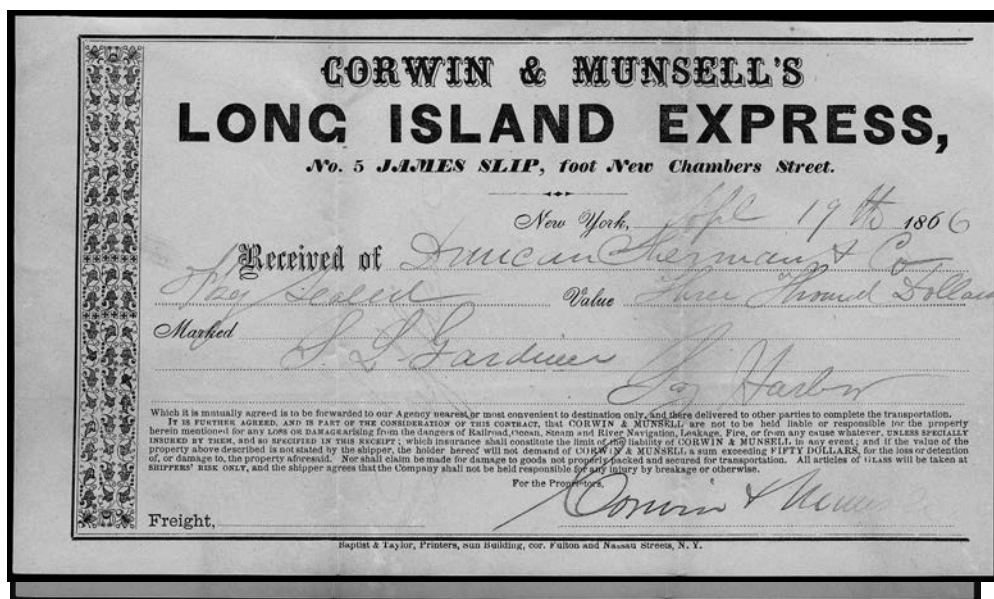 CORWIN & MUNSELL'S
LONG ISLAND EXPRESS,
No. 5 JAMES SLIP, foot New Chambers Street.
New York, Sept 19th 1866
Received of Duncan Sherman & Co
Pkg Sealed Value Three Thousd Dollars
Marked
S. L. Gardiner
Sag Harbor
Which it is mutually agreed is to be forwarded to our Agency nearest or most convenient to destination only, and there delivered to other parties to complete the transportation.
IT IS FURTHER AGREED, AND IS PART OF THE CONSIDERATION OF THIS CONTRACT, that CORWIN & MUNSELL are not to be held liable or responsible for the property
herein mentioned for any LOSS OR DAMAGE arising from the dangers of Railroad, Ocean, Steam and River Navigation, Leakage, Fire, or from any cause whatever, UNLESS SPECIALLY
INSURED BY THEM, AND SO SPECIFIED IN THIS RECEIPT; which insurance shall constitute the limit of the liability of CORWIN & MUNSELL in any event; and if the value of the
property above described is not stated by the shipper, the holder hereof will not demand of CORWIN & MUNSELL a sum exceeding FIFTY DOLLARS, for the loss or detention
of, or damage to, the property aforesaid. Nor shall claim be made for damage to goods not properly packed and secured for transportation. All articles of GLASS will be taken at
SHIPPERS' RISK ONLY, and the shipper agrees that the Company shall not be held responsible for any injury by breakage or otherwise.
For the Proprietors,
Corwin & Munsell
Freight,
Baptist & Taylor, Printers, Sun Building, cor. Fulton and Nassau Streets, N. Y.